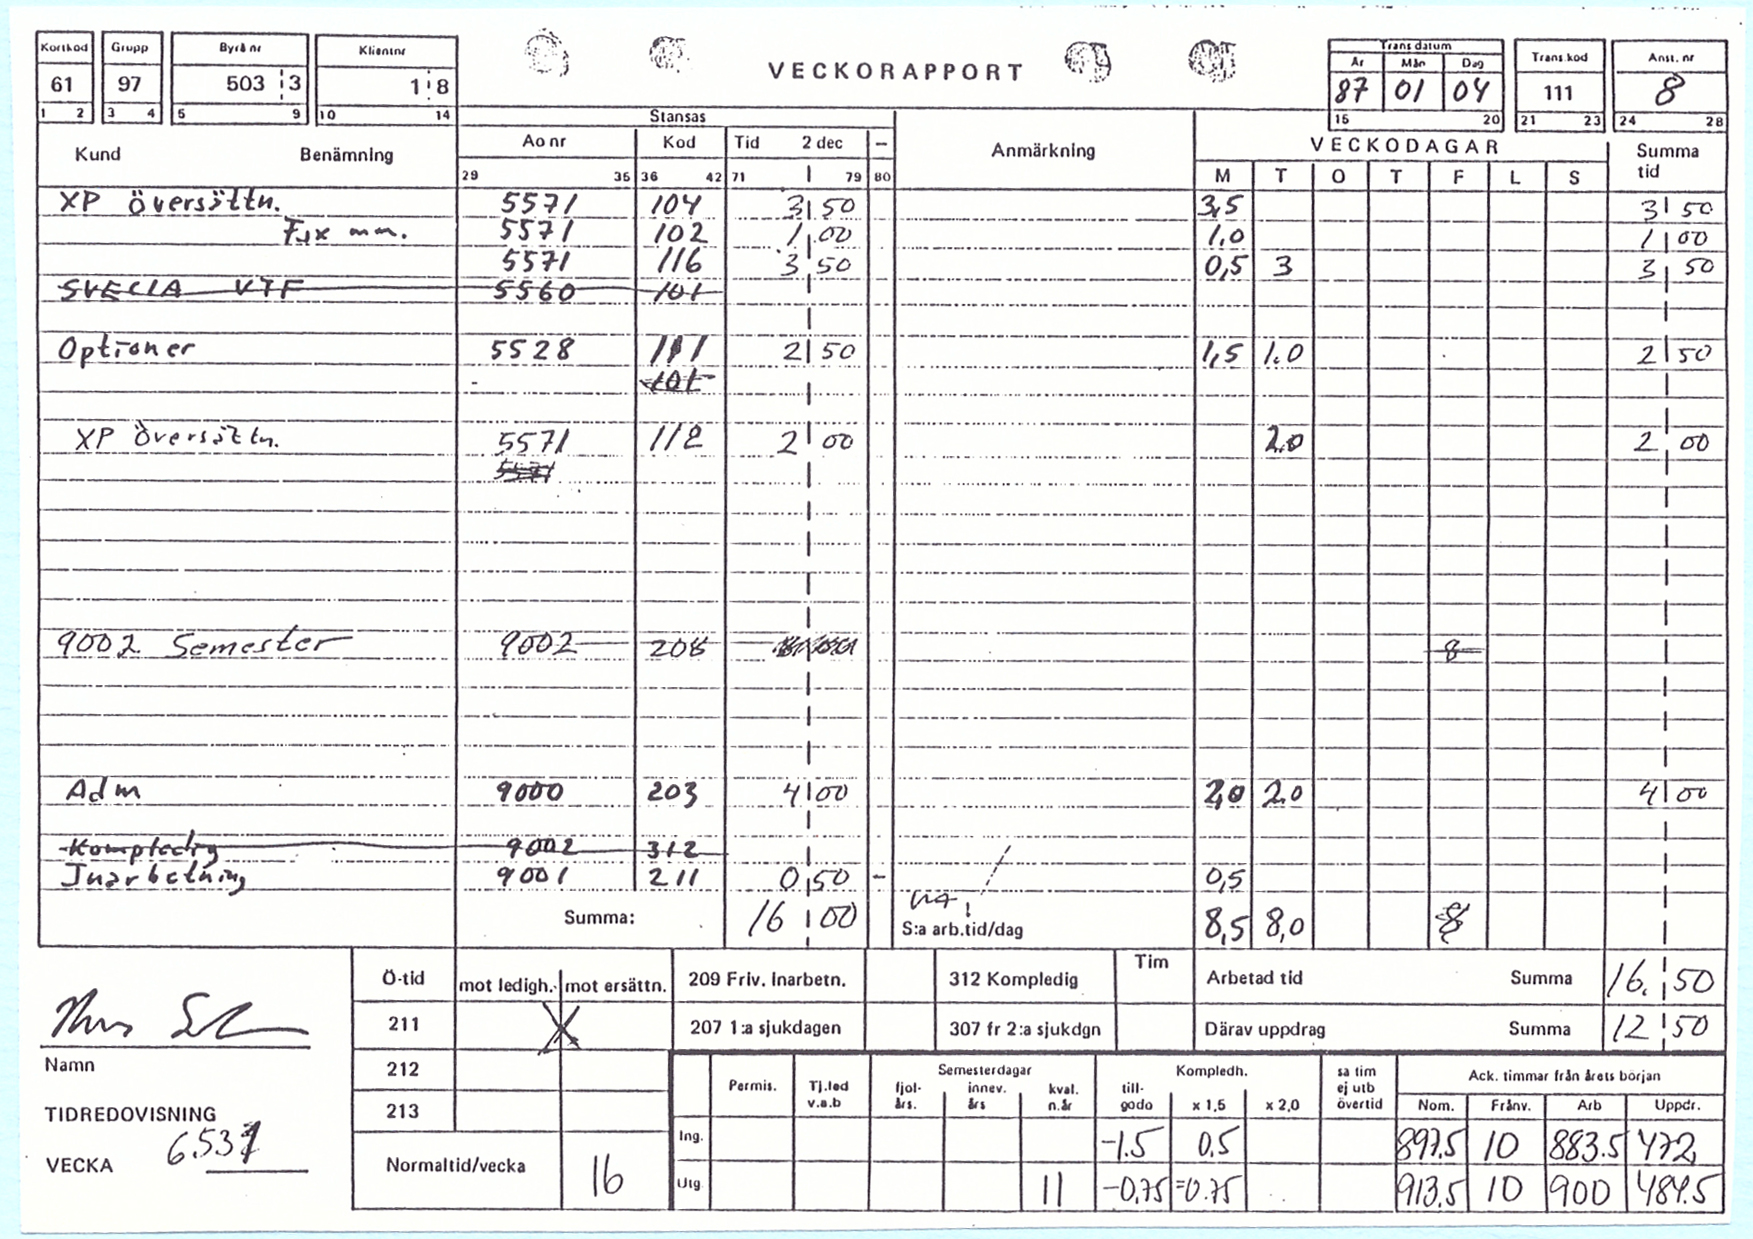 Kortkod Grupp Byrå nr Klientnr
61 97 503 3 1 8
1 2 3 4 5 9 10 14
VECKORAPPORT
Trans datum
År Mån Dag Trans.kod Anst. nr
87 01 04 111 8
15 20 21 23 24 28
Stansas
Kund Benämning Ao nr Kod Tid 2 dec – Anmärkning VECKODAGAR Summa tid
29 35 36 42 71 79 80 M T O T F L S
XP översättn. 5571 104 3 50 3,5 3 50
Fix mm. 5571 102 1 00 1,0 1 00
5571 116 3 50 0,5 3 3 50
SVECIA VTF 5560 101
Optioner 5528 111 2 50 1,5 1.0 2 50
101
XP översättn. 5571 112 2 00 2.0 2 00
5571
9002 Semester 9002 208 8
Adm 9000 203 4 00 2,0 2.0 4 00
Kompledig 9002 312
Inarbetning 9001 211 0 50 – 0,5
Summa: 16 00 S:a arb.tid/dag 8,5 8,0 8
Ö-tid mot ledigh. mot ersättn. 209 Friv. Inarbetn. 312 Kompledig Tim Arbetad tid Summa 16. 50
211 X 207 1:a sjukdagen 307 fr 2:a sjukdgn Därav uppdrag Summa 12 50
Namn
212
213
TIDREDOVISNING
VECKA 6531
Normaltid/vecka 16
Permis. Tj.led v.a.b Semesterdagar fjol-års. innev. års kval. n.år Kompledh. till-godo x 1,5 x 2,0 sa tim ej utb övertid Ack. timmar från årets början
Nom. Frånv. Arb Uppdr.
Ing. -1.5 0,5 897.5 10 883.5 472
Utg. 11 -0,75 =0.75 913.5 10 900 484.5